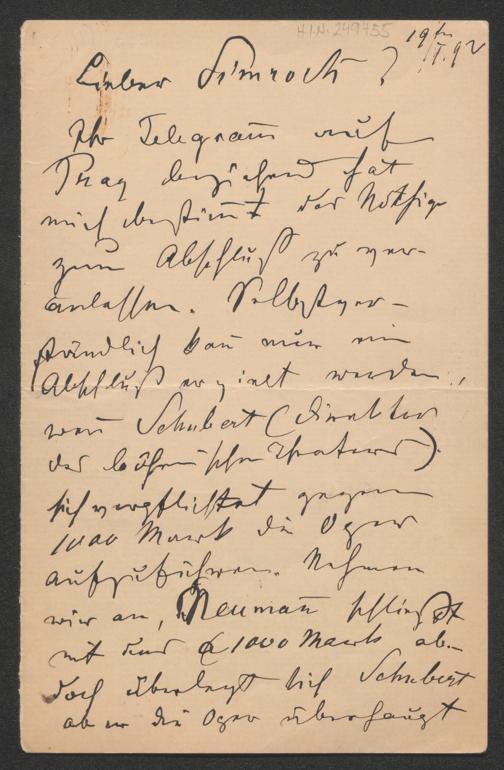 H.I.N. 249455
19/ten I. 92
Lieber Simrock!
Ihr Telegram̄ auf
Prag beziehend hat
mich bestim̄t das Nöthige
zum Abschluß zu ver-
anlassen. Selbstver-
ständlich kan̄ nur ein
Abschluß erzielt werden,
wen̄ Schubert (Direktor
des böhmischen Theaters)
sich verpflichtet gegen
1000 Mark die Oper
aufzuführen. Nehmen
wir an, Neuman̄ schließt
mit uns à 1000 Mark ab-
doch überlegt sich Schubert
ob er die Oper überhaupt